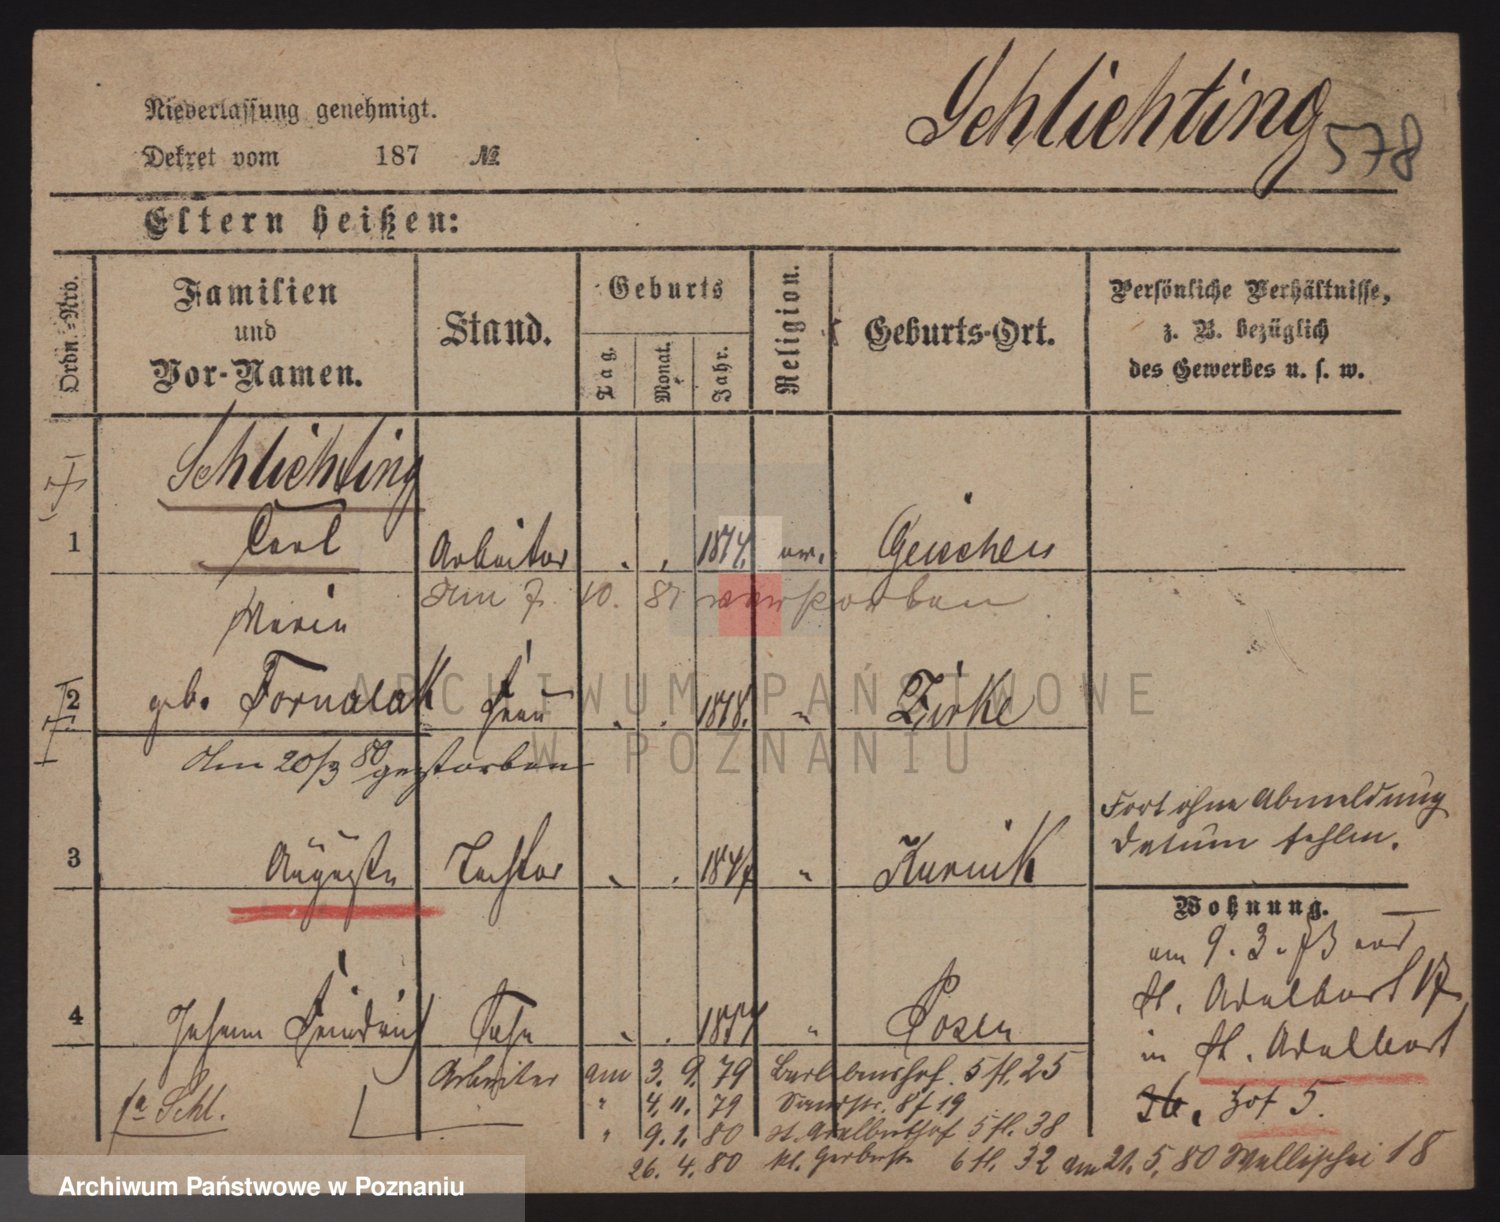 Schlichting
578
Niederlassung genehmigt.
Dekret vom 187 №
Eltern heißen:
Ordn.-Nro.
Familien
und
Vor-Namen.
Stand.
Geburts
Tag.
Monat.
Jahr.
Religion.
Geburts-Ort.
Persönliche Verhältnisse,
z. B. bezüglich
des Gewerbes u. s. w.
Schlichting
1 Carl Arbeiter 1814. ev.
Am 7. 10. 81 verstorben
Maria
2 geb. Fornalak Frau 1818. " Zirke
Am 20/3 80 gestorben
3 Auguste Tochter 1847 " Kurnik
Fort ohne Abmeldung
Datum fehlen.
Wohnung.
am 9. 3. 73 von
St. Adalbert 17
in St. Adalbert
36, Hof 5.
4 Johann Friedrich Sohn 1857 " Posen
Arbeiter am 3. 9. 79 5 fl. 25
" 4. 11. 79 Sandstr. 8 f 19
" 9. 1. 80 St. Adalberthof 5 fl. 38
26. 4. 80 kl. Gerberstr. 6 fl. 32 am 21. 5. 80 Wallischei 18
Schl.
ARCHIWUM PAŃSTWOWE
W POZNANIU
Archiwum Państwowe w Poznaniu